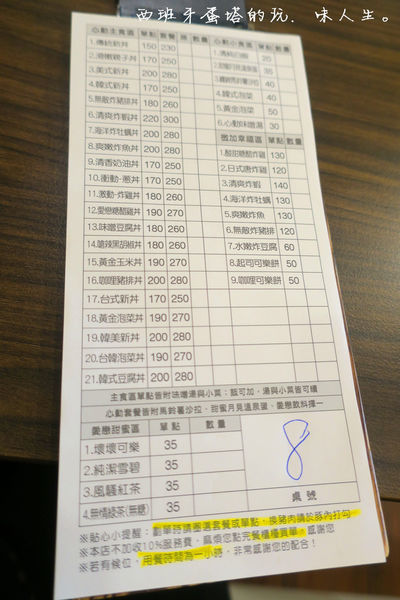 西班牙蛋塔的玩．味人生。
心動主食區 單點 套餐 換 數量
1.傳統新丼 150 230
2.滑嫩親子丼 170 250
3.美式新丼 200 280
4.韓式新丼 200 280
5.無敵炸豬排丼 180 260
6.清爽炸蝦丼 220 300
7.海洋炸牡蠣丼 200 280
8.爽嫩炸魚丼 200 280
9.清香奶油丼 170 250
10.衝動-蔥丼 170 250
11.激動-炸雞丼 180 260
12.愛戀糖醋雞丼 190 270
13.味噌豆腐丼 180 260
14.嗆辣黑胡椒丼 180 260
15.黃金玉米丼 190 270
16.咖哩豬排丼 200 280
17.台式新丼 170 250
18.黃金泡菜丼 190 270
19.韓美新丼 200 280
20.台韓泡菜丼 190 270
21.韓式豆腐丼 200 280
心動小食區 單點 數量
20
35
40
4.韓式泡菜 40
5.黃金泡菜 50
6.心動味噌湯 30
微加幸福區 單點 數量
1.酸甜糖醋炸雞 130
2.日式唐炸雞 120
3.清爽炸蝦 140
4.海洋炸牡蠣 130
5.爽嫩炸魚 130
6.無敵炸豬排 120
7.水嫩炸豆腐 60
8.起司可樂餅 50
9.咖哩可樂餅 50
主食區單點皆附味噌湯與小菜；飯可加，湯與小菜皆可續
心動套餐皆附馬鈴薯沙拉、甜蜜月見溫泉蛋、愛戀飲料擇一
愛戀甜蜜區 單點 數量
1.壞壞可樂 35
2.純潔雪碧 35
3.風騷紅茶 35
4.無憾綠茶(無糖) 35
8
桌號
※貼心小提醒：劃單時請圈選套餐或單點，換豬肉請於豚內打勾
※本店不加收10%服務費，麻煩您點完餐櫃檯買單，感謝您
※若有候位，用餐時間為一小時，非常感謝您的配合！